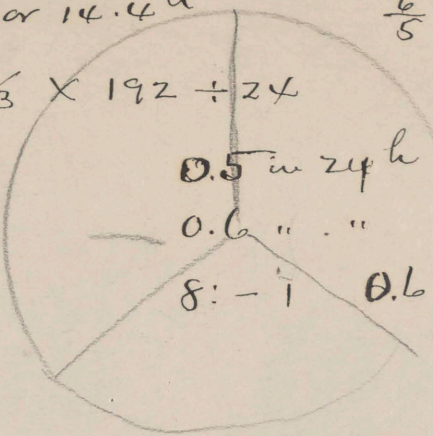 or 14.4h
6/5
3 × 192 ÷ 24
0.5 in 24h
0.6 " . "
8: - i 0.6